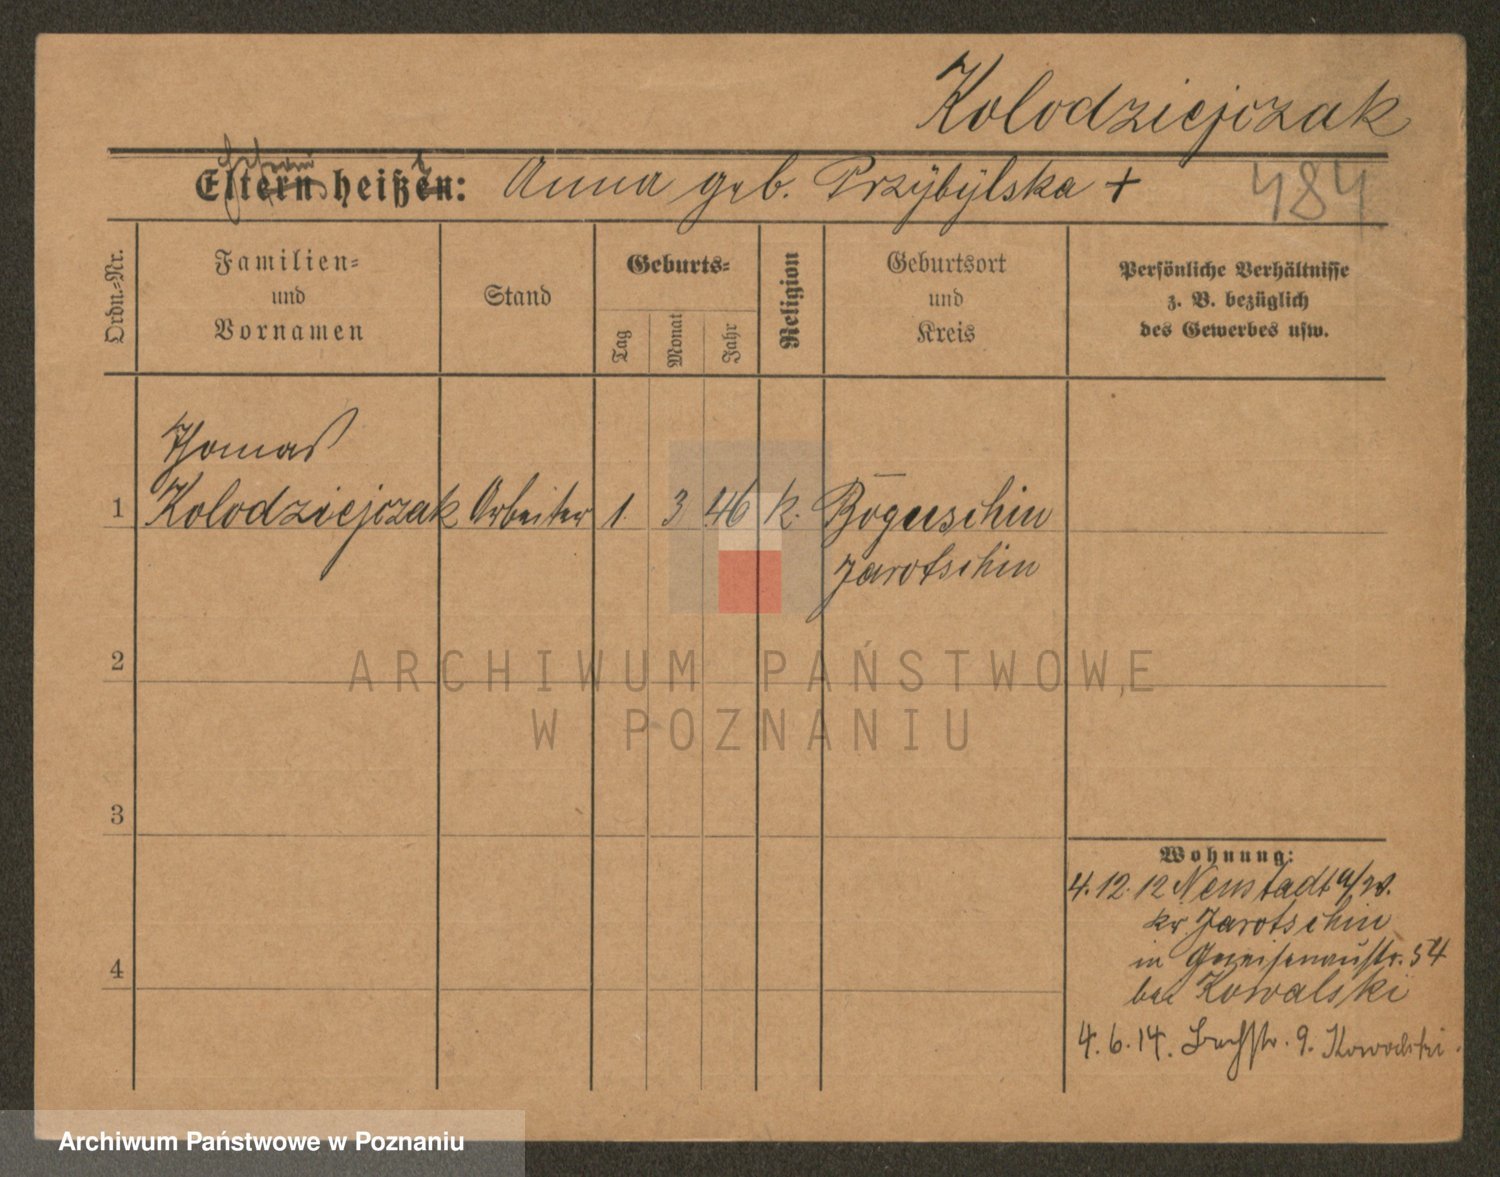 Kolodziejczak
Eltern heißen: Ehefrau heißt Anna geb. Przybylska +
484
Ordn.-Nr.
Familien-
und
Vornamen
Stand
Geburts-
Tag
Monat
Jahr
Religion
Geburtsort
und
Kreis
Persönliche Verhältnisse
z. B. bezüglich
des Gewerbes usw.
Thomas
1 Kolodziejczak Arbeiter 1. 3 46 k. Boguschin
Jarotschin
2
ARCHIWUM PAŃSTWOWE
W POZNANIU
3
Wohnung:
4.12.12 Neustadt a/W.
Kr. Jarotschin
in Gneisenaustr. 54
bei Kowalski
4
4.6.14. Bachstr. 9. Kowalski.
Archiwum Państwowe w Poznaniu